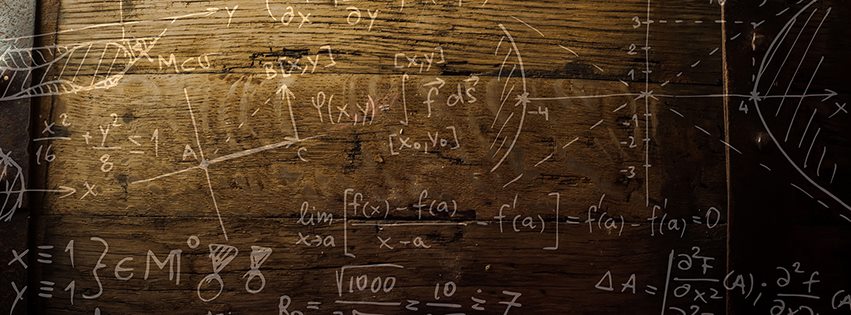 Y
∂x ∂y
MCU
B[x,y]
[x,y]
φ(x,y) = ∫ f⃗ ds⃗
[x₀,y₀]
A
C
x²/16 + y²/8 ≤ 1
X
3
2
1
-4
4
x
-1
-2
-3
lim x→a [(f(x) - f(a))/(x - a) - f'(a)] = f'(a) - f'(a) = 0
x ≡ 1
y ≡ 1
} ∈ M°
√1000
= 10
≐ 7
ΔA = | ∂²f/∂x² (A); ∂²f